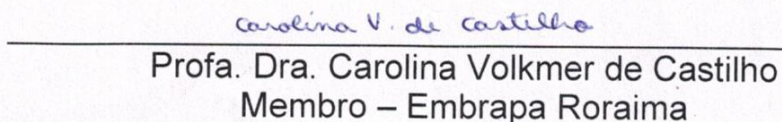 Carolina V. de Castilho
Profa. Dra. Carolina Volkmer de Castilho
Membro – Embrapa Roraima